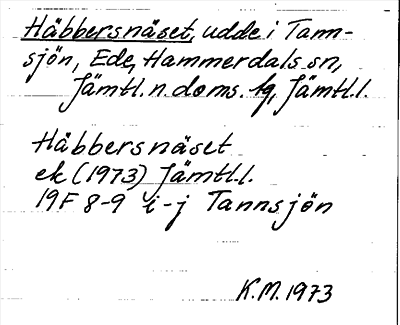 Håbbersnäset, udde i Tann-
sjön, Ede, Hammerdals sn,
Jämtl. n. doms. tg, Jämtl. l.
Håbbersnäset
ek (1973) Jämtl. l.
19F 8-9 i-j Tannsjön
K.M. 1973